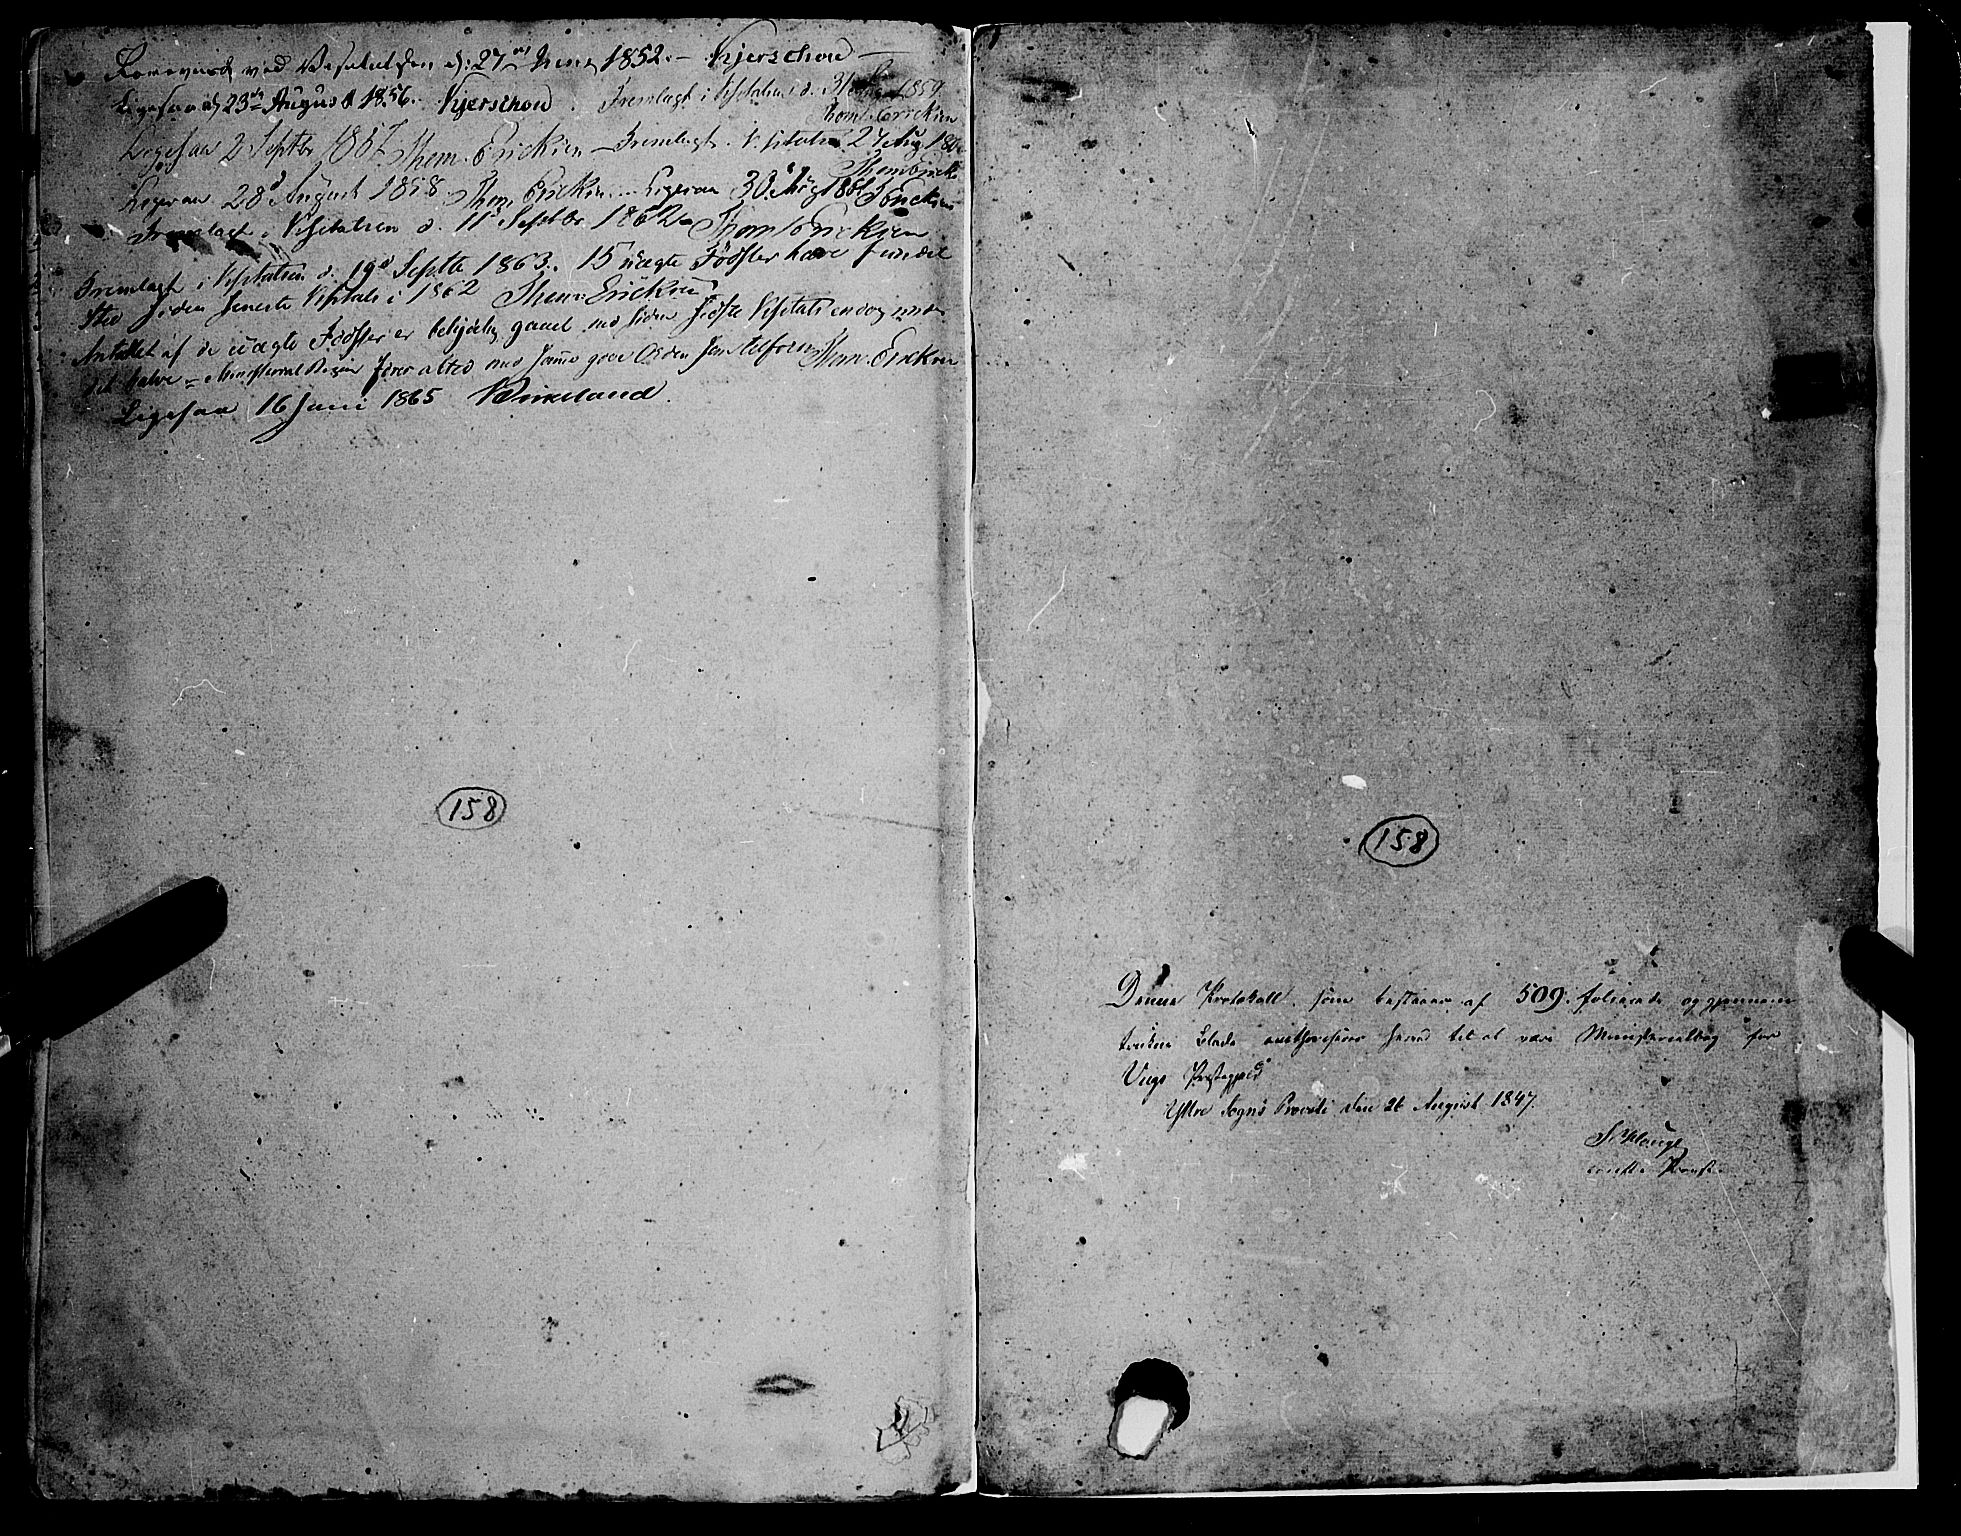 Foreviist ved Visitatsen d: 27de Juni 1852. – Kjerschow –
Ligesaa d 23de August 1856. Kjerschow. Fremlagt i Visitatsen d. 31 1859
Thom: Ericksen
Ligesaa 2 Septbr 1857 Thom. Ericksen – Fremlagt i Visitatsen 27 Aug. 186
Thom: Ericks
Ligesaa 28d August 1858. Thom Ericksen – Ligesaa 30. Aug 1861 T Ericksen
Fremlagt i Visitatsen d. 11d Septbr. 1862 – Thom: Ericksen
Fremlagt i Visitatsen d. 19d Septbr 1863. 15 uægte Fødsler have fundet
Sted siden seneste Visitats i 1862 Thom: Ericksen
Antallet af de uægte Fødsler er betydelig gaaet ned siden sidste Visitats endog under
det halve – Ministerial Bogen føres altid med samme gode Orden som tilforn Thom. Ericksen
Ligesaa 16 Juni 1865 Birkeland.
158
158
Denne Protokoll, som bestaaer af 509 folierede og gjennem
trukne Blade authoriseres herved til at være Ministerialbog for
Viigs Præstegjeld
Yttre Sogns Provsti den 26 August 1847.
const. Provst